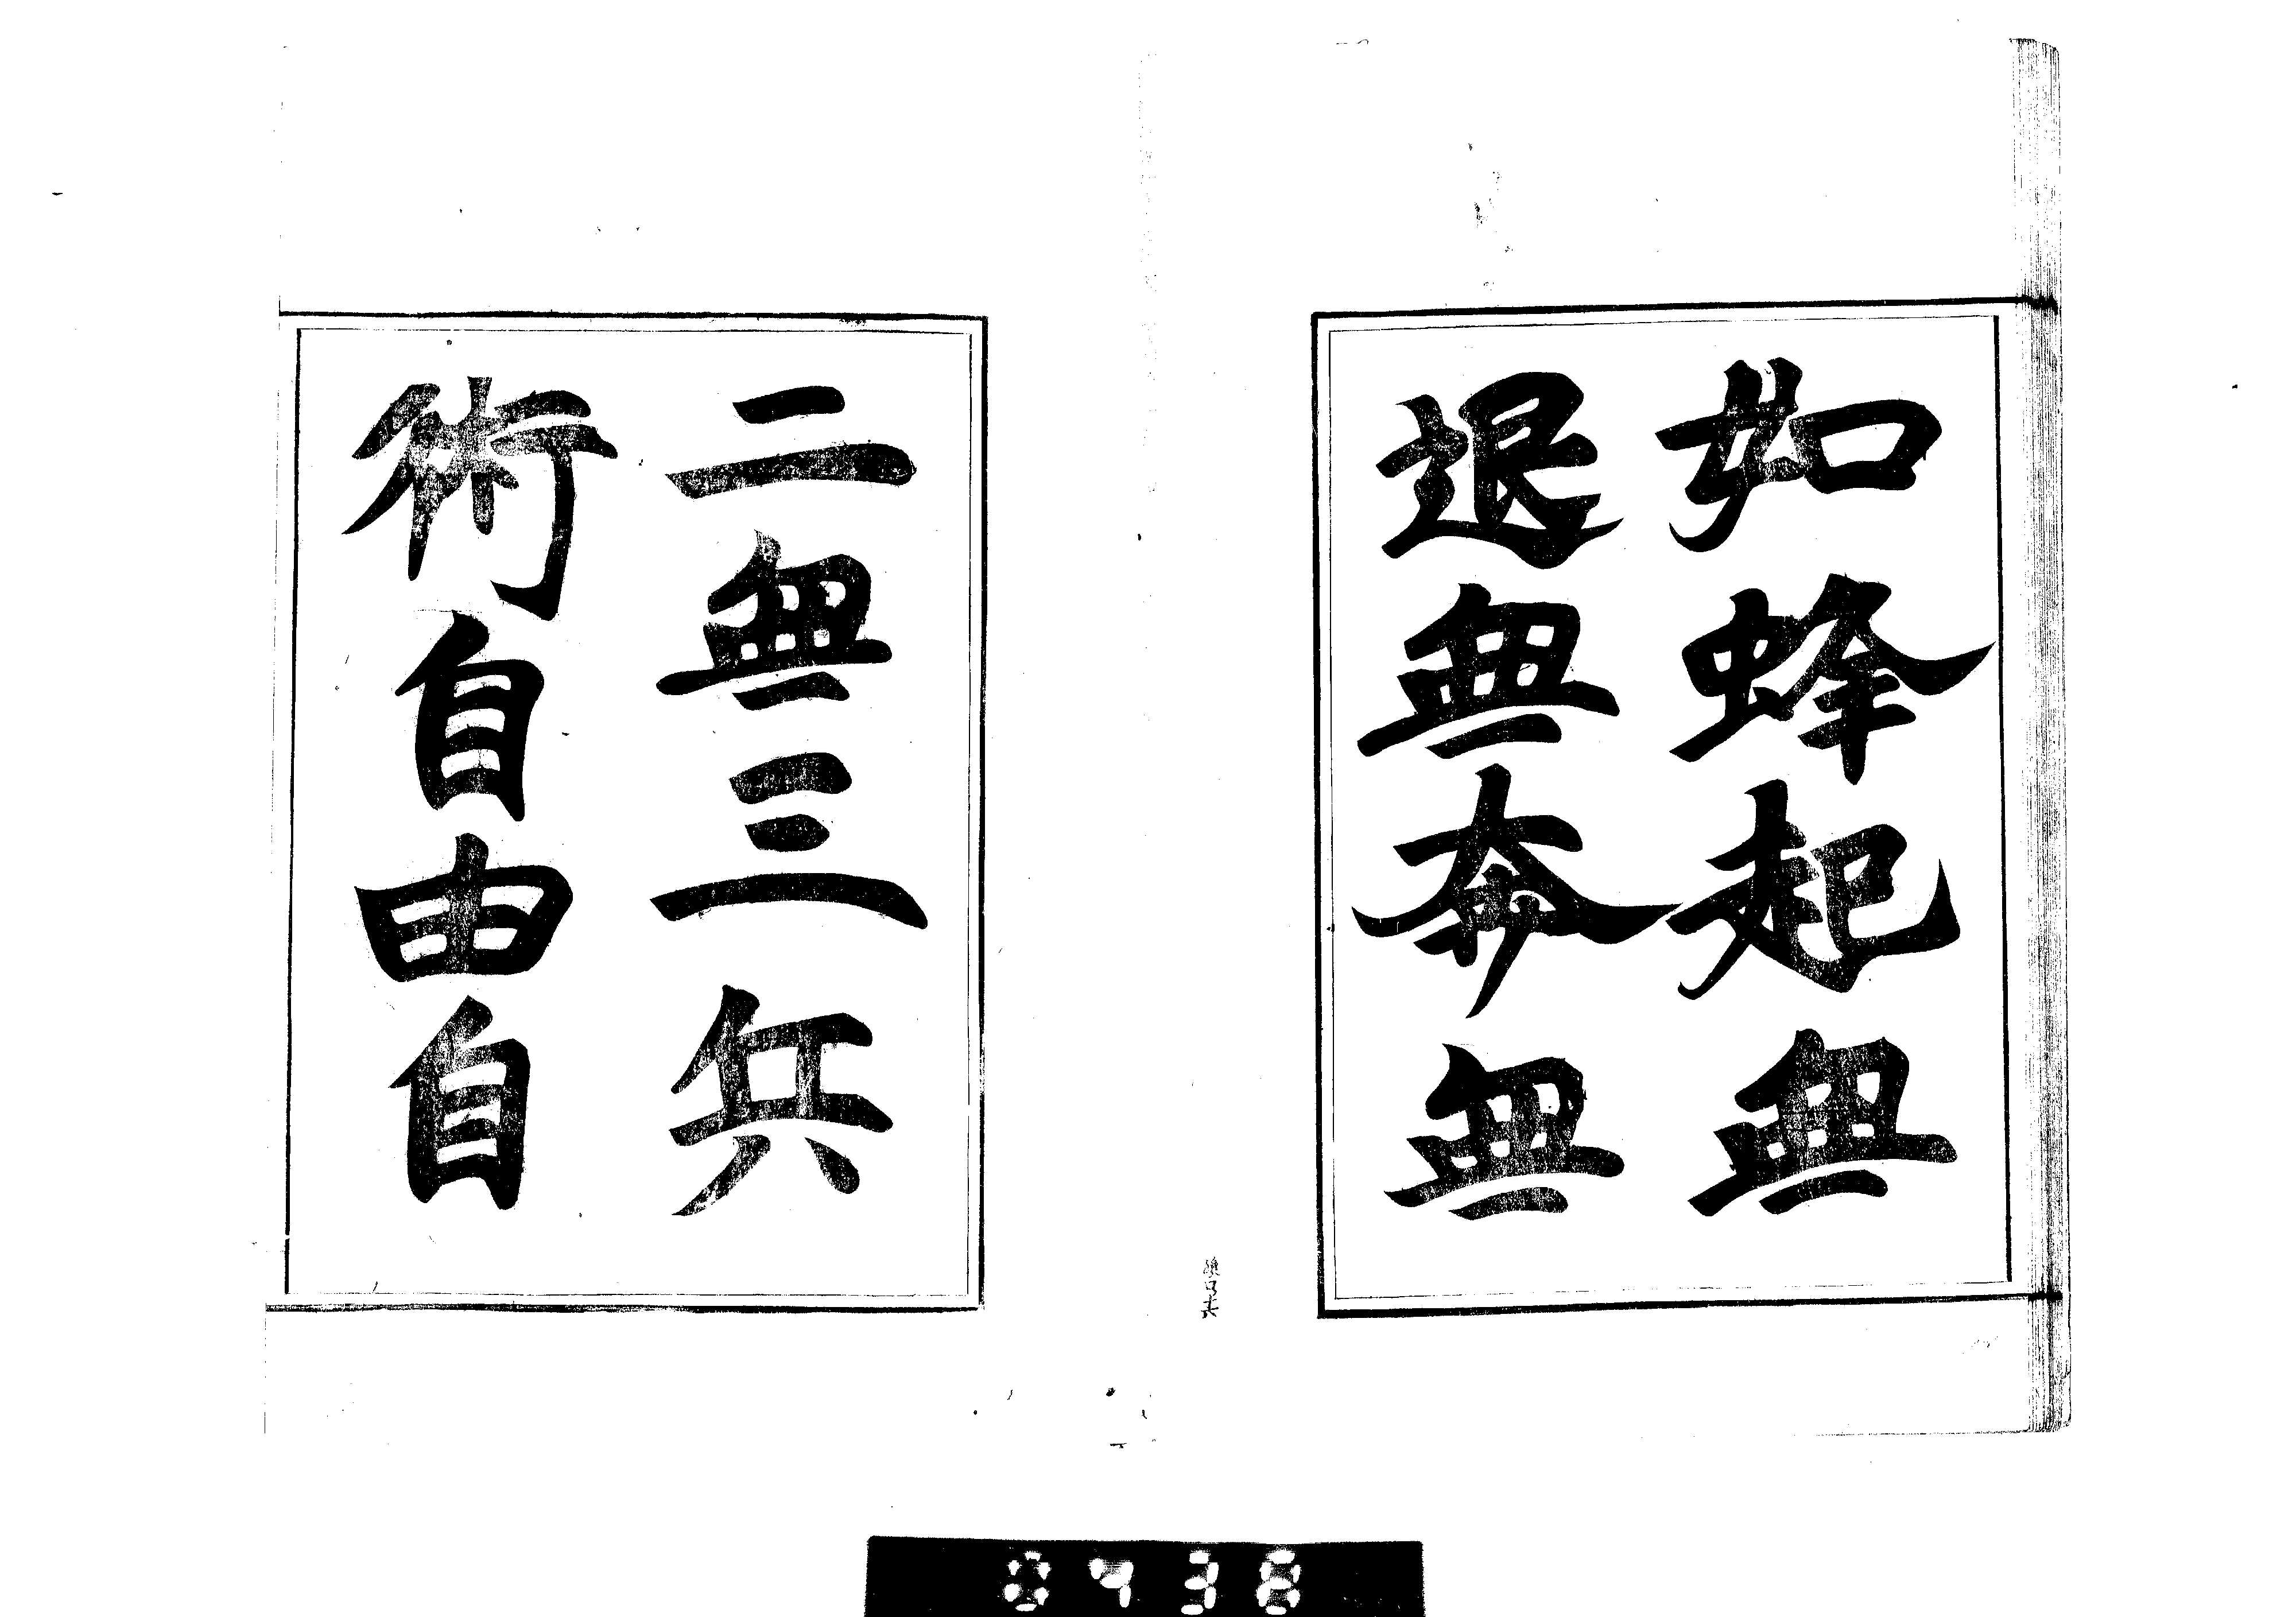 如蜂起無
退無奔無
二無三兵
術自由自
0438